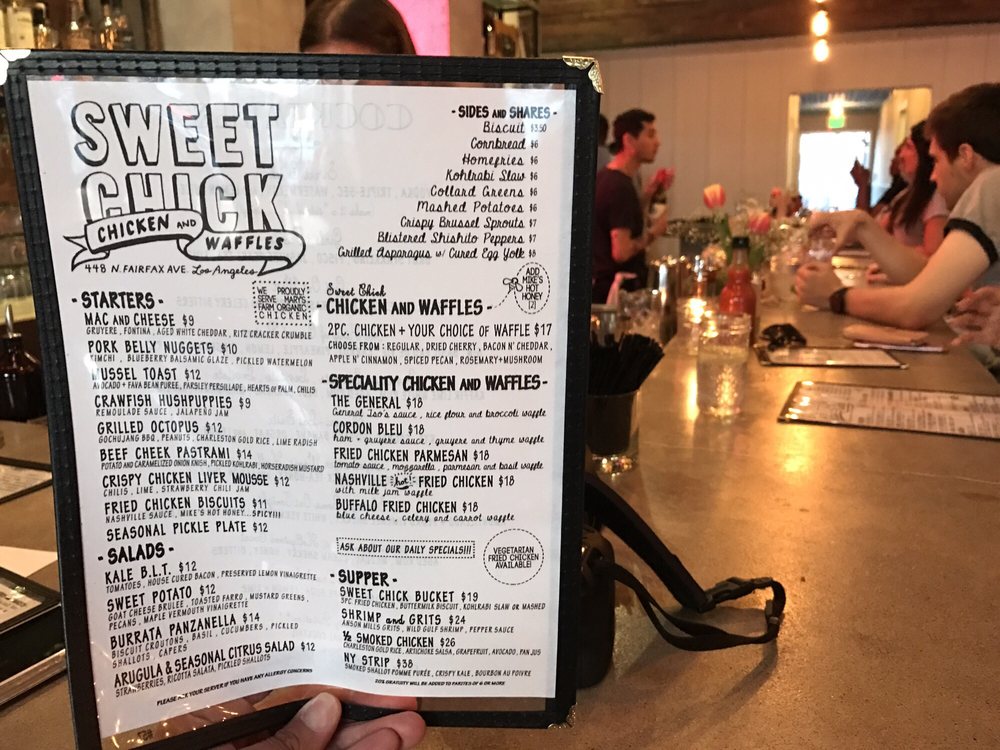 SWEET
CHICK
CHICKEN AND
WAFFLES
448 N. FAIRFAX AVE Los Angeles
- STARTERS -
WE PROUDLY
SERVE MARY'S
FARM ORGANIC
CHICKEN
MAC AND CHEESE $9
GRUYERE, FONTINA, AGED WHITE CHEDDAR, RITZ CRACKER CRUMBLE
PORK BELLY NUGGETS $10
KIMCHI, BLUEBERRY BALSAMIC GLAZE, PICKLED WATERMELON
MUSSEL TOAST $12
AVOCADO + FAVA BEAN PUREE, PARSLEY PERSILLADE, HEARTS OF PALM, CHILIS
CRAWFISH HUSHPUPPIES $9
REMOULADE SAUCE, JALAPEÑO JAM
GRILLED OCTOPUS $12
GOCHUJANG BBQ, PEANUTS, CHARLESTON GOLD RICE, LIME RADISH
BEEF CHEEK PASTRAMI $14
POTATO AND CARAMELIZED ONION KNISH, PICKLED KOHLRABI, HORSERADISH MUSTARD
CRISPY CHICKEN LIVER MOUSSE $12
CHILIS, LIME, STRAWBERRY CHILI JAM
FRIED CHICKEN BISCUITS $11
NASHVILLE SAUCE, MIKE'S HOT HONEY...SPICY!!!
SEASONAL PICKLE PLATE $12
- SALADS -
KALE B.L.T. $12
TOMATOES, HOUSE CURED BACON, PRESERVED LEMON VINAIGRETTE
SWEET POTATO $12
GOAT CHEESE BRULEE, TOASTED FARRO, MUSTARD GREENS,
PECANS, MAPLE VERMOUTH VINAIGRETTE
BURRATA PANZANELLA $14
BISCUIT CROUTONS, BASIL, CUCUMBERS, PICKLED
SHALLOTS CAPERS
ARUGULA & SEASONAL CITRUS SALAD $12
STRAWBERRIES, RICOTTA SALATA, PICKLED SHALLOTS
PLEASE ASK YOUR SERVER IF YOU HAVE ANY ALLERGY CONCERNS
- SIDES AND SHARES -
Biscuit $3.50
Cornbread $6
Homefries $6
Kohlrabi Slaw $6
Collard Greens $6
Mashed Potatoes $6
Crispy Brussel Sprouts $7
Blistered Shishito Peppers $7
Grilled Asparagus w/ Cured Egg Yolk $8
ADD
MIKE'S
HOT
HONEY
[2]
Sweet Chick
- CHICKEN AND WAFFLES -
2PC. CHICKEN + YOUR CHOICE OF WAFFLE $17
CHOOSE FROM: REGULAR, DRIED CHERRY, BACON N' CHEDDAR,
APPLE N' CINNAMON, SPICED PECAN, ROSEMARY+MUSHROOM
- SPECIALITY CHICKEN AND WAFFLES -
THE GENERAL $18
General Tso's sauce, rice flour and broccoli waffle
CORDON BLEU $18
ham + gruyere sauce, gruyere and thyme waffle
FRIED CHICKEN PARMESAN $18
tomato sauce, mozzarella, parmesan and basil waffle
NASHVILLE hot! FRIED CHICKEN $18
with milk jam waffle
BUFFALO FRIED CHICKEN $18
blue cheese, celery and carrot waffle
ASK ABOUT OUR DAILY SPECIALS!!!
VEGETARIAN
FRIED CHICKEN
AVAILABLE!
- SUPPER -
SWEET CHICK BUCKET $19
3PC. FRIED CHICKEN, BUTTERMILK BISCUIT, KOHLRABI SLAW OR MASHED
SHRIMP and GRITS $24
ANSON MILLS GRITS, WILD GULF SHRIMP, PEPPER SAUCE
½ SMOKED CHICKEN $26
CHARLESTON GOLD RICE, ARTICHOKE SALSA, GRAPEFRUIT, AVOCADO, PAN JUS
NY STRIP $38
SMOKED SHALLOT POMME PURÉE, CRISPY KALE, BOURBON AU POIVRE
20% GRATUITY WILL BE ADDED TO PARITIES OF 6 OR MORE